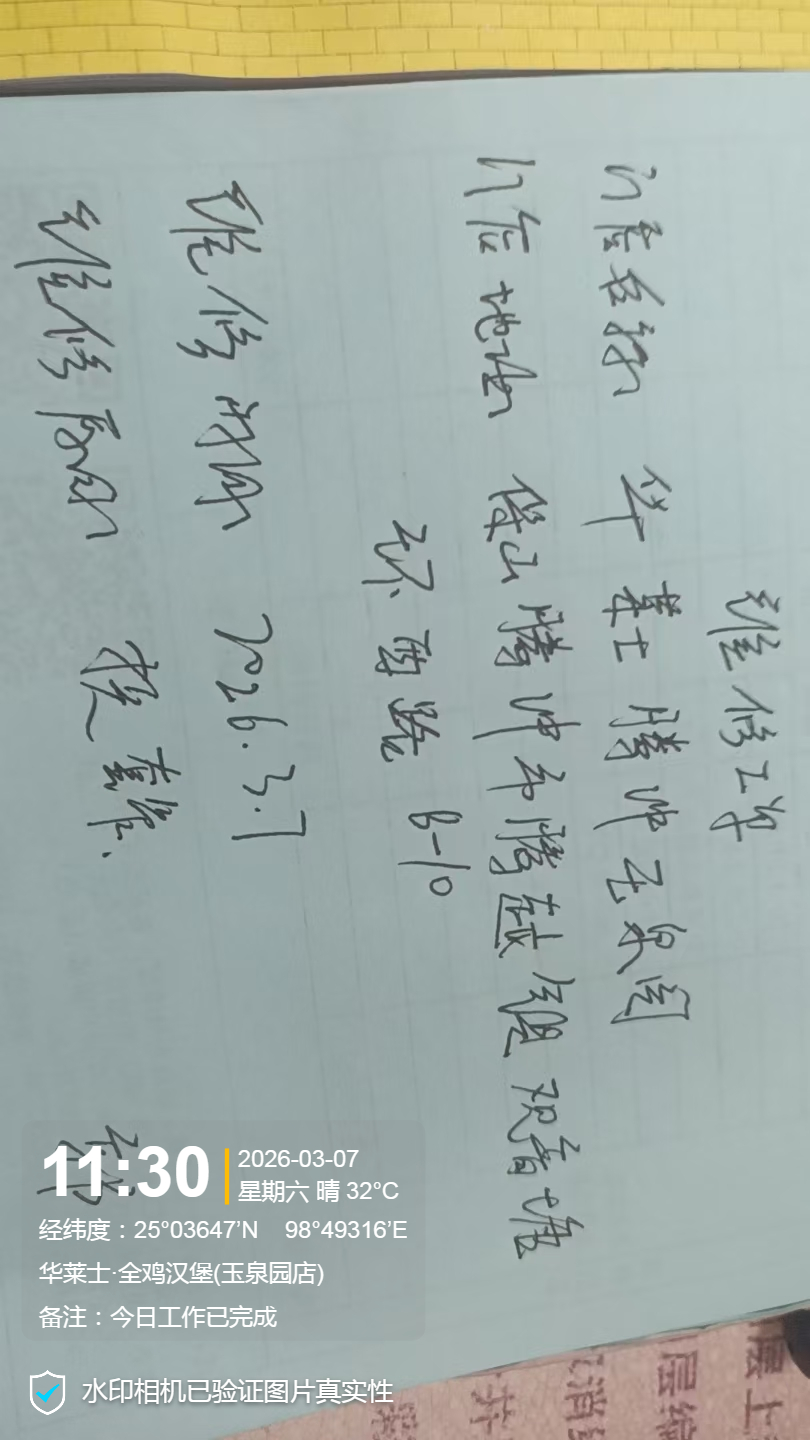 维修工单
门店名称 华莱士腾冲玉泉园
门店地址 保山腾冲市腾越镇观音塘
环西路 B-10
维修时间 2026.3.7
维修原因
11:30
2026-03-07
星期六 晴 32°C
经纬度：25°03647'N 98°49316'E
华莱士·全鸡汉堡(玉泉园店)
备注：今日工作已完成
水印相机已验证图片真实性